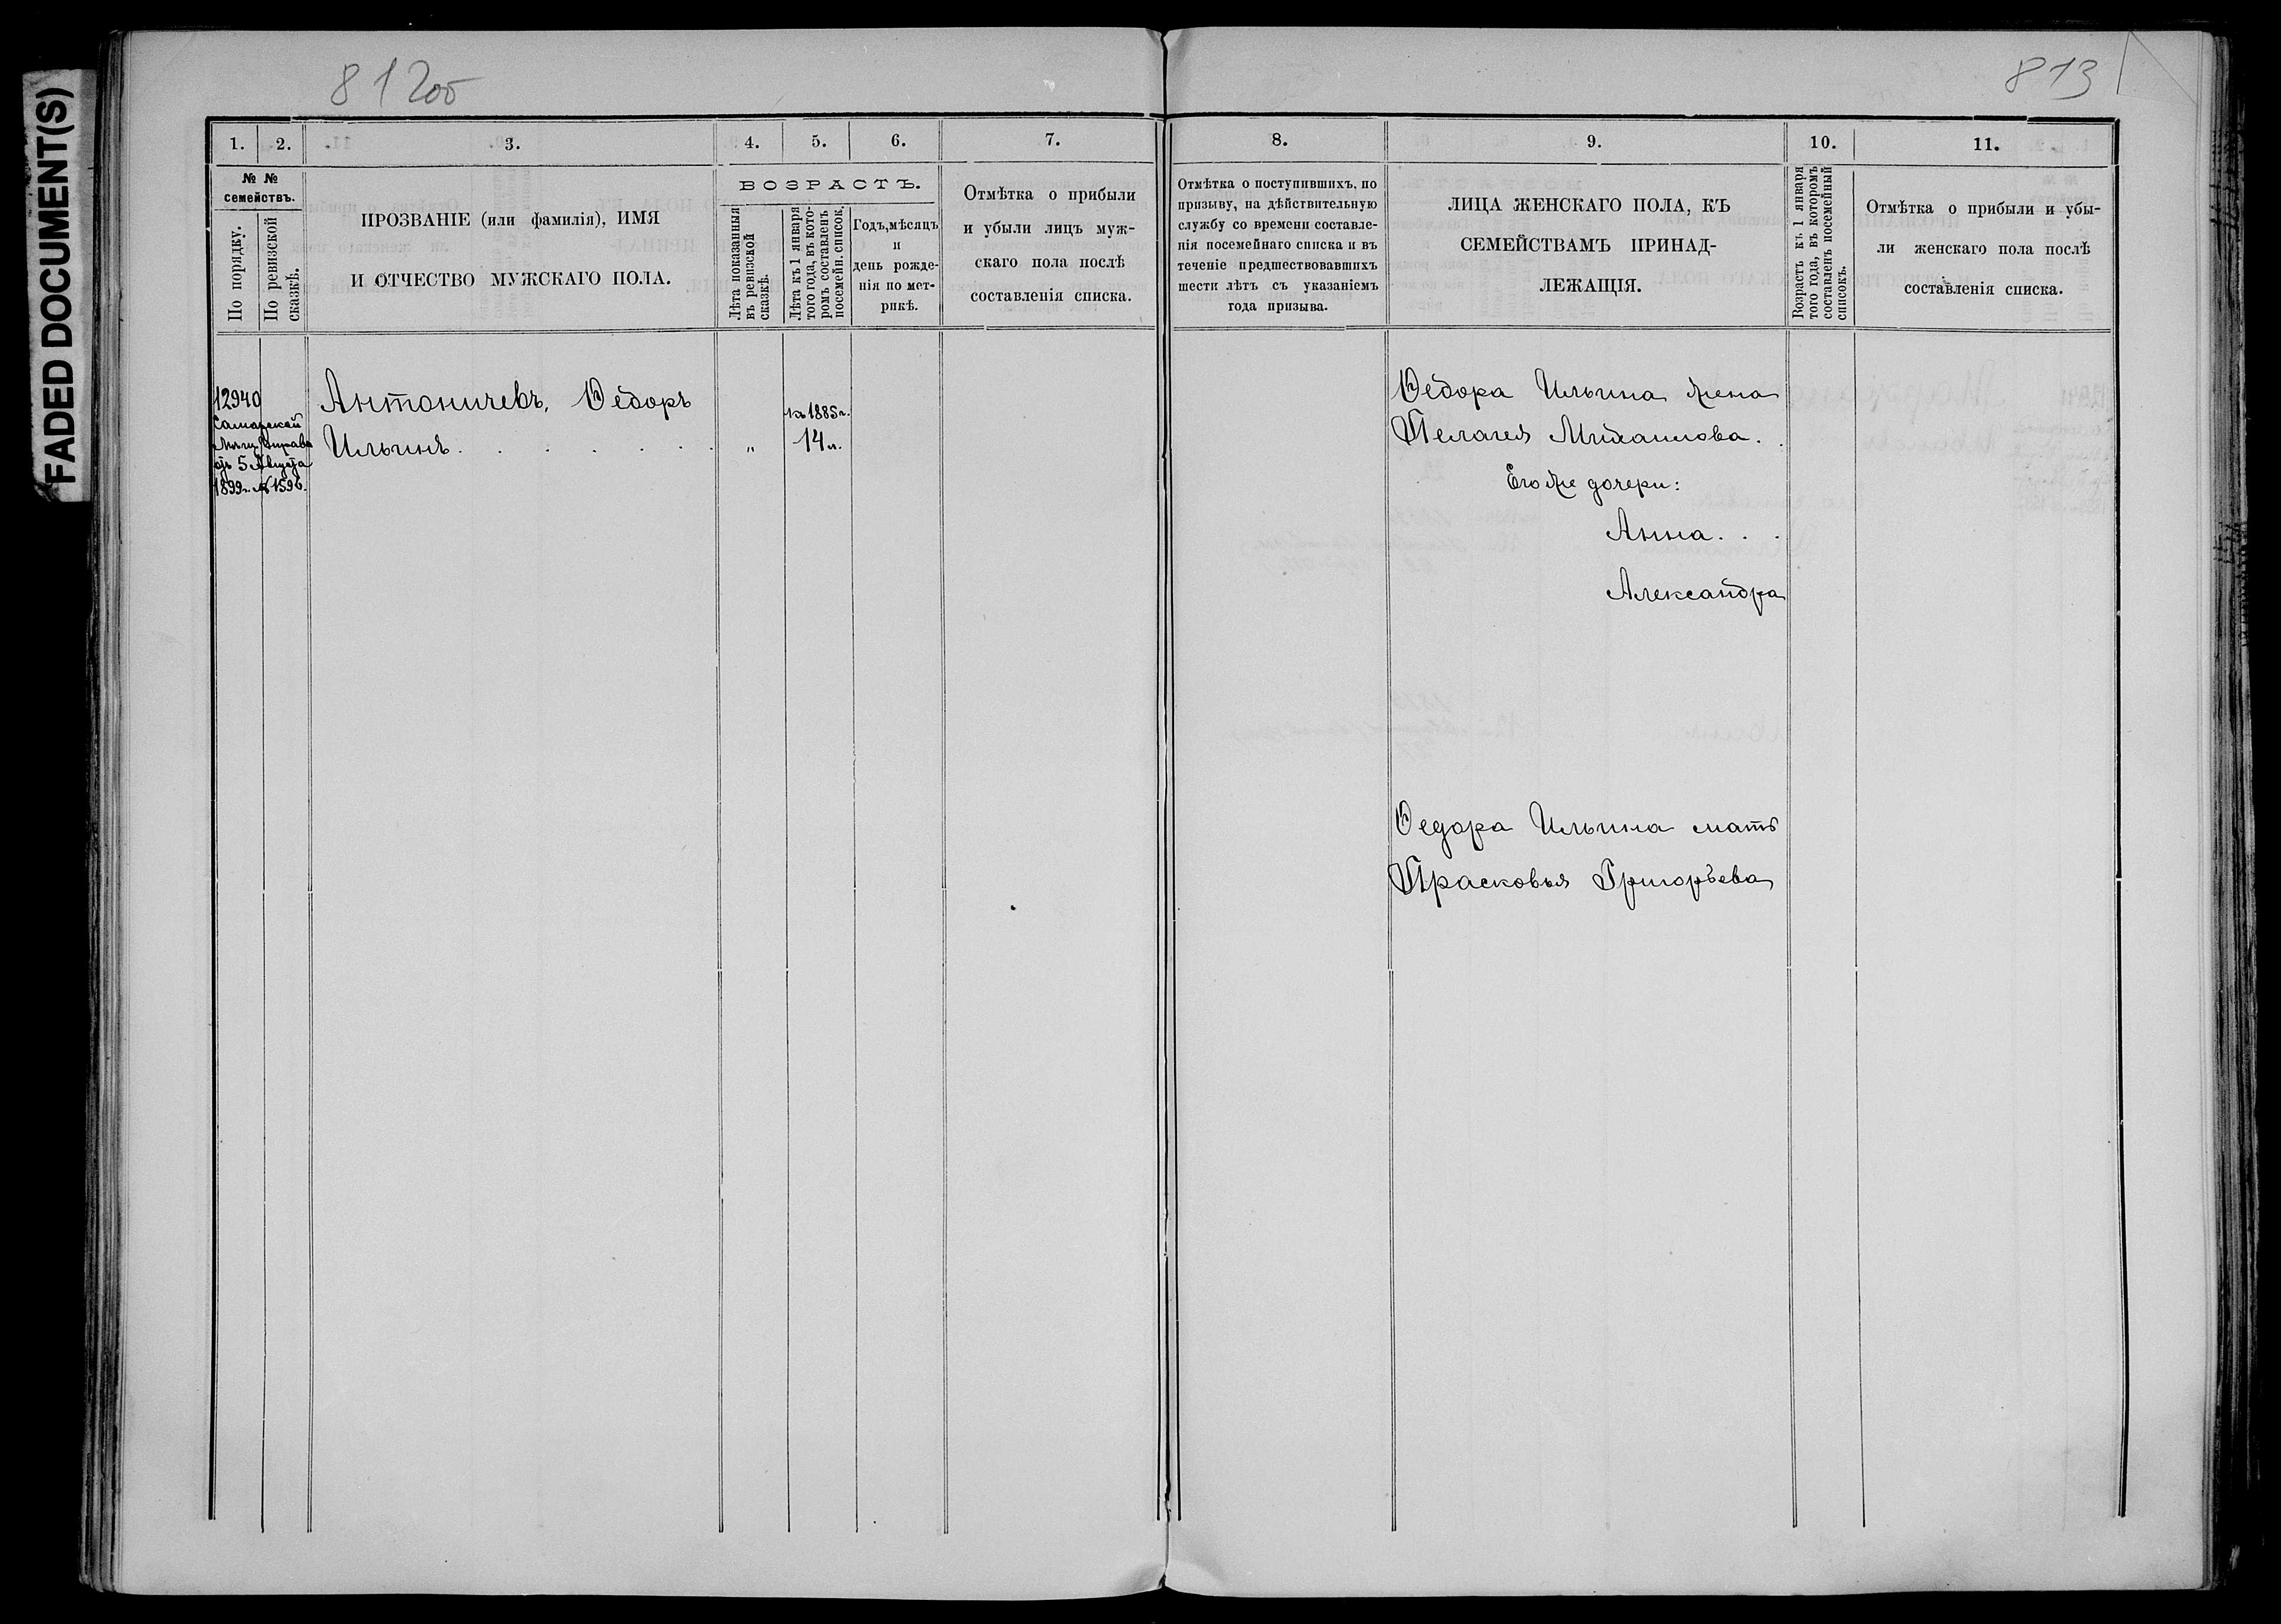 FADED DOCUMENT(S)
812об
813
1.
2.
3.
4.
5.
6.
7.
№ №
семействъ.
По порядку.
По ревизской
сказкѣ.
ПРОЗВАНІЕ (или фамилія), ИМЯ
И ОТЧЕСТВО МУЖСКАГО ПОЛА.
ВОЗРАСТЪ.
Лѣта показанныя
въ ревизской
сказкѣ.
Лѣта къ 1 января
того года, въ кото-
ромъ составленъ
посемейн. список.
Годъ, мѣсяцъ
и
день рожде-
нія по мет-
рикѣ.
Отмѣтка о прибыли
и убыли лицъ муж-
скаго пола послѣ
составленія списка.
12940
Самарской
Мѣщ. Управы
отъ 5 Августа
1899 г. № 1596.
Антоничевъ, Ѳедоръ
Ильинъ . . . . . .
„
къ 1885 г.
14 л.
8.
9.
10.
11.
Отмѣтка о поступившихъ, по
призыву, на дѣйствительную
службу со времени составле-
нія посемейнаго списка и въ
теченіе предшествовавшихъ
шести лѣтъ съ указаніемъ
года призыва.
ЛИЦА ЖЕНСКАГО ПОЛА, КЪ
СЕМЕЙСТВАМЪ ПРИНАД-
ЛЕЖАЩІЯ.
Возрастъ къ 1 января
того года, въ которомъ
составленъ посемейный
списокъ.
Отмѣтка о прибыли и убы-
ли женскаго пола послѣ
составленія списка.
Ѳедора Ильина жена
Пелагея Михаилова . .
Его же дочери:
Анна . . .
Александра
Ѳедора Ильина мать
Прасковья Григорьева